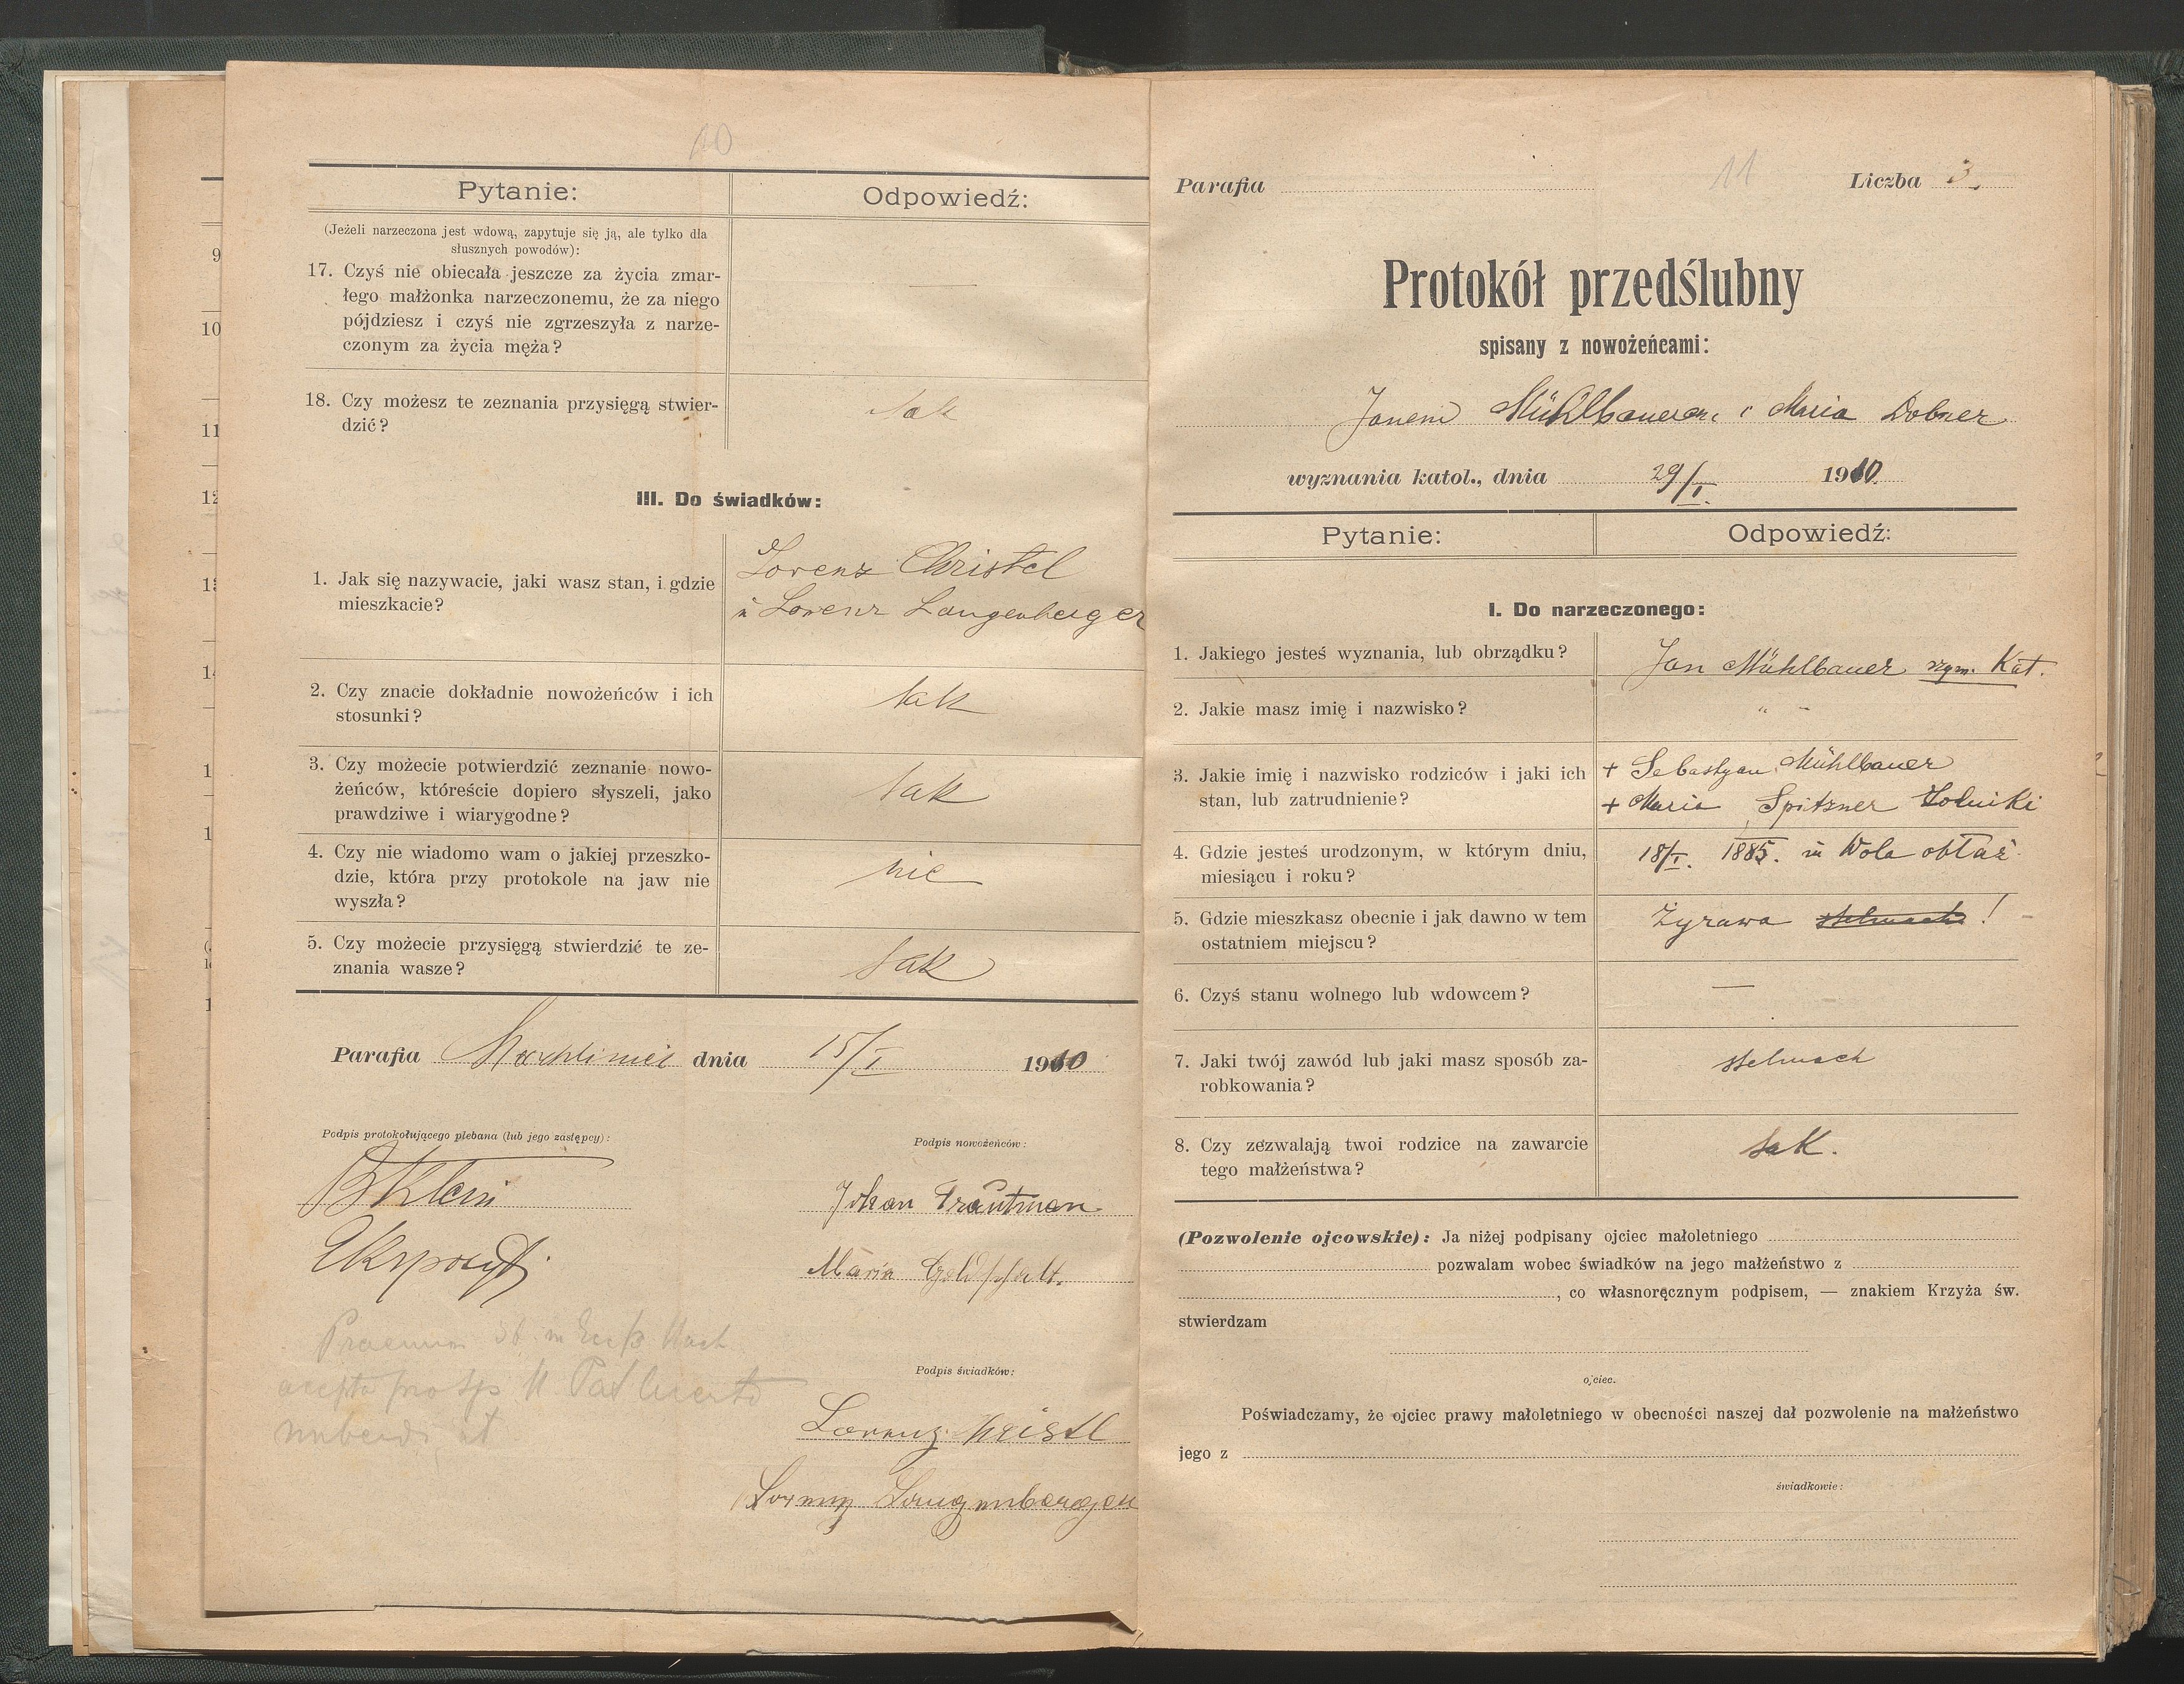 10
Pytanie:
Odpowiedź:
(Jeżeli narzeczona jest wdową, zapytuje się ją, ale tylko dla
słusznych powodów):
17. Czyś nie obiecała jeszcze za życia zmar-
łego małżonka narzeczonemu, że za niego
pójdziesz i czyś nie zgrzeszyła z narze-
czonym za życia męża?
—
18. Czy możesz te zeznania przysięgą stwier-
dzić?
tak
III. Do świadków:
1. Jak się nazywacie, jaki wasz stan, i gdzie
mieszkacie?
Lorenz Christel
Lorenz Langenberger
2. Czy znacie dokładnie nowożeńców i ich
stosunki?
tak
3. Czy możecie potwierdzić zeznanie nowo-
żeńców, któreście dopiero słyszeli, jako
prawdziwe i wiarygodne?
tak
4. Czy nie wiadomo wam o jakiej przeszko-
dzie, która przy protokole na jaw nie
wyszła?
nie
5. Czy możecie przysięgą stwierdzić te ze-
znania wasze?
tak
Parafia Machliniec dnia 15/I 1910
Podpis protokołującego plebana (lub jego zastępcy):
Podpis nowożeńców:
B Klein
Johan Trautman
Eksposyt
Maria
Podpis świadków:
Lorenz Kristl
Lorenz Langenberger
9
10
11
12
Parafia
11
Liczba 3.
Protokół przedślubny
spisany z nowożeńcami:
Janem Mühlbauerem i Maria Dobner
wyznania katol., dnia 29/I. 1910.
Pytanie:
Odpowiedź:
I. Do narzeczonego:
1. Jakiego jesteś wyznania, lub obrządku?
Jan Mühlbauer rzym. Kat.
2. Jakie masz imię i nazwisko?
" "
3. Jakie imię i nazwisko rodziców i jaki ich
stan, lub zatrudnienie?
+ Sebastyan Mühlbauer
+ Maria Spitzner Rolniki
4. Gdzie jesteś urodzonym, w którym dniu,
miesiącu i roku?
18/I. 1885. w Wola obłaz.
5. Gdzie mieszkasz obecnie i jak dawno w tem
ostatniem miejscu?
Żyrawa stelmach !
6. Czyś stanu wolnego lub wdowcem?
—
7. Jaki twój zawód lub jaki masz sposób za-
robkowania?
stelmach
8. Czy zezwalają twoi rodzice na zawarcie
tego małżeństwa?
tak.
(Pozwolenie ojcowskie): Ja niżej podpisany ojciec małoletniego
pozwalam wobec świadków na jego małżeństwo z
, co własnoręcznym podpisem, — znakiem Krzyża św.
stwierdzam
ojciec.
Poświadczamy, że ojciec prawy małoletniego w obecności naszej dał pozwolenie na małżeństwo
jego z
świadkowie: